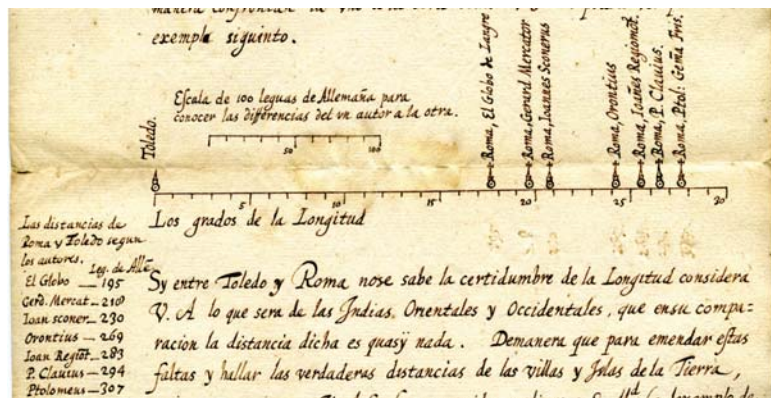 exemplo siguinto.
Escala de 100 leguas de Allemaña para
conocer las differencias del vn autor a la otra.
50
100
Toledo.
Roma, El Globo de Langre
Roma, Gerard Mercator
Roma, Ioannes Sconerus
Roma, Orontius
Roma, Ioañes Regiomõt.
Roma, P. Clauius.
Roma, Ptol: Gema Fris.
5
10
15
20
25
30
Los grados de la Longitud
Las distancias de
Roma y Toledo segun
los autores.
Leg. de Allẽ
El Globo — 195
Gerd. Mercat —
Ioan sconer — 230
Orontius — 269
Ioan Regiõt — 283
P. Clauius — 294
Ptolomeus — 307
Sy entre Toledo y Roma nose sabe la certidumbre de la Longitud considera
V. A lo que sera de las Indias, Orientales y Occidentales, que ensu compa=
racion la distancia dicha es quasÿ nada. Demanera que para emendar estas
faltas y hallar las verdaderas distancias de las villas y Islas de la Tierra,